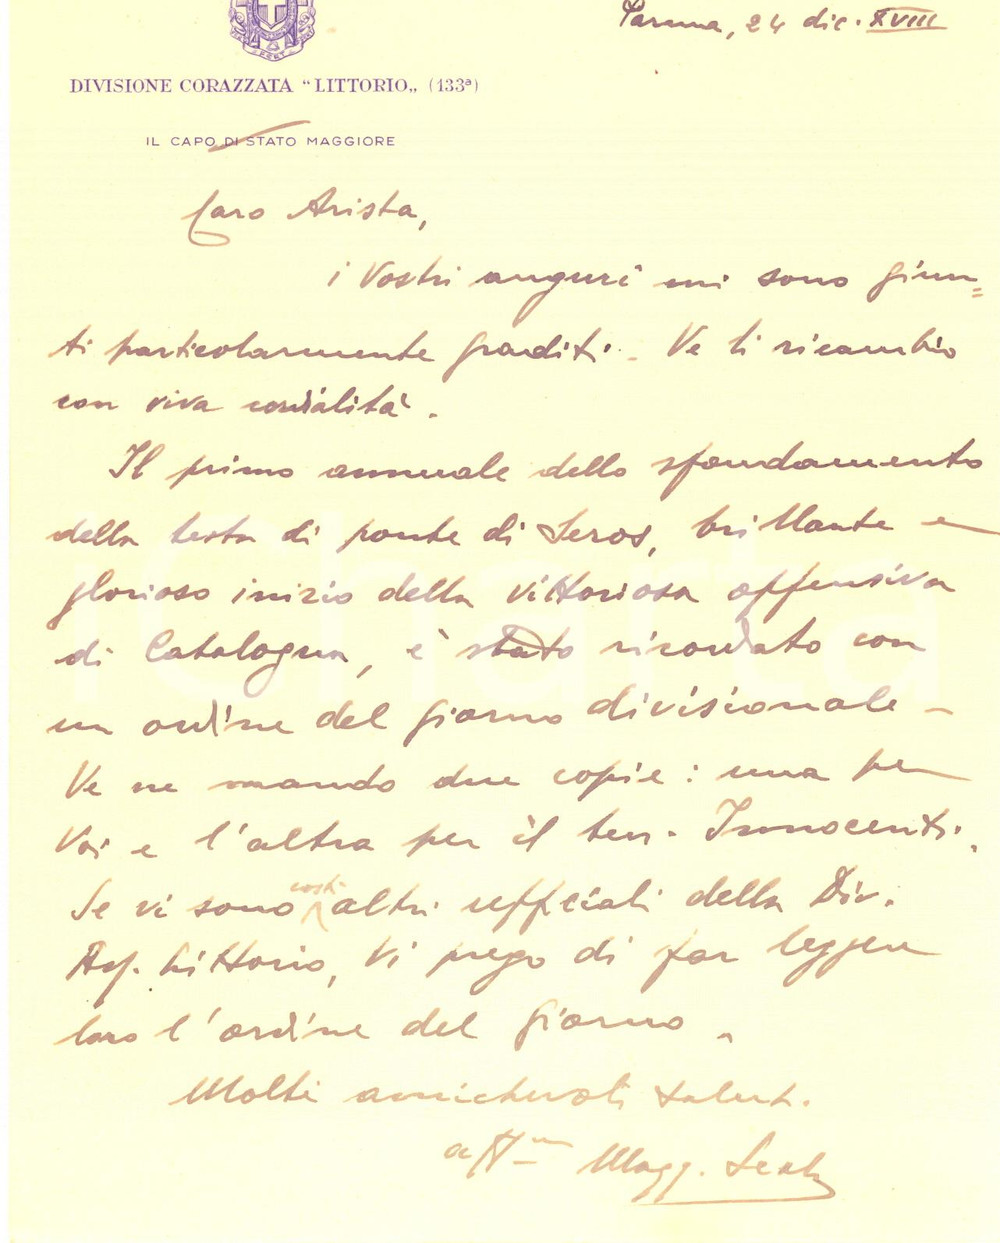 Parma, 24 dic. XVIII
DIVISIONE CORAZZATA "LITTORIO„ (133ª)
IL CAPO DI STATO MAGGIORE
Caro Arista,
i Vostri auguri mi sono giun=
ti particolarmente graditi. Ve li ricambio
con viva cordialità.
Il primo annuale dello sfondamento
della testa di ponte di Seros, brillante e
glorioso inizio della vittoriosa offensiva
di Catalogna, è stato ricordato con
un ordine del giorno divisionale -
Ve ne mando due copie: una per
Voi e l'altra per il ten. Innocenti.
Se vi sono costì altri ufficiali della Div.
Ass. Littorio, Vi prego di far leggere
loro l'ordine del giorno.
Molti amichevoli saluti.
aff.mo Magg.
iCharta